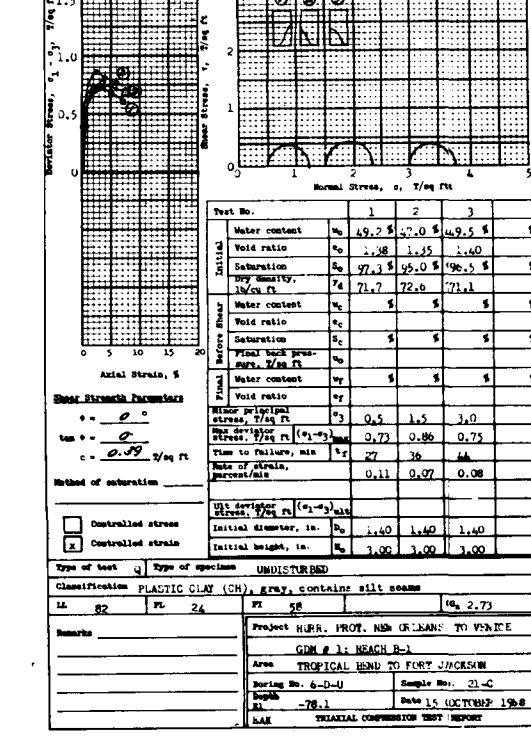 1.5
1.0
0.5
0
Deviator Stress, σ1 - σ3, T/sq ft
0 5 10 15 20
Axial Strain, %
Shear Stress, τ, T/sq ft
2
1
0
0 1 2 3 4 5
Normal Stress, σ, T/sq ft
Test No. 1 2 3
Initial
Water content wo 49.2 % 47.0 % 49.5 %
Void ratio eo 1.38 1.35 1.40
Saturation So 97.3 % 95.0 % 96.5 %
Dry density, lb/cu ft γd 71.7 72.6 71.1
Before Shear
Water content wc % % %
Void ratio ec
Saturation Sc % % %
Final back pressure, T/sq ft uo
Final
Water content wf % % %
Void ratio ef
Minor principal stress, T/sq ft σ3 0.5 1.5 3.0
Max deviator stress, T/sq ft (σ1-σ3)max 0.73 0.86 0.75
Time to failure, min tf 27 36 44
Rate of strain, percent/min 0.11 0.07 0.08
Ult deviator stress, T/sq ft (σ1-σ3)ult
Initial diameter, in. Do 1.40 1.40 1.40
Initial height, in. Ho 3.00 3.00 3.00
Shear Strength Parameters
φ = 0 °
tan φ = 0
c = 0.39 T/sq ft
Method of saturation
Controlled stress
x Controlled strain
Type of test Q Type of specimen UNDISTURBED
Classification PLASTIC CLAY (CH), gray, contains silt seams
LL 82 PL 24 PI 58 Gs 2.73
Remarks
Project HURR. PROT. NEW ORLEANS TO VENICE
GDM # 1: REACH B-1
Area TROPICAL BEND TO FORT JACKSON
Boring No. 6-D-U Sample No. 21-C
Depth El -78.1 Date 15 OCTOBER 1968
TRIAXIAL COMPRESSION TEST REPORT